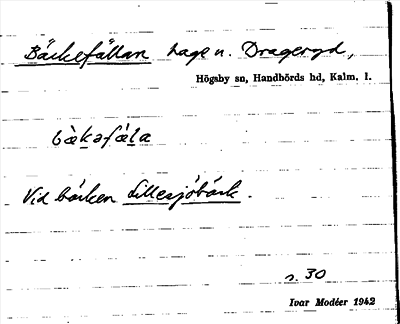 Bäckefållan hage u. Drageryd,
Högsby sn, Handbörds hd, Kalm. l.
bæ̀kəfåla
Vid bäcken Lillesjöbäck.
s. 30
Ivar Modéer 1942